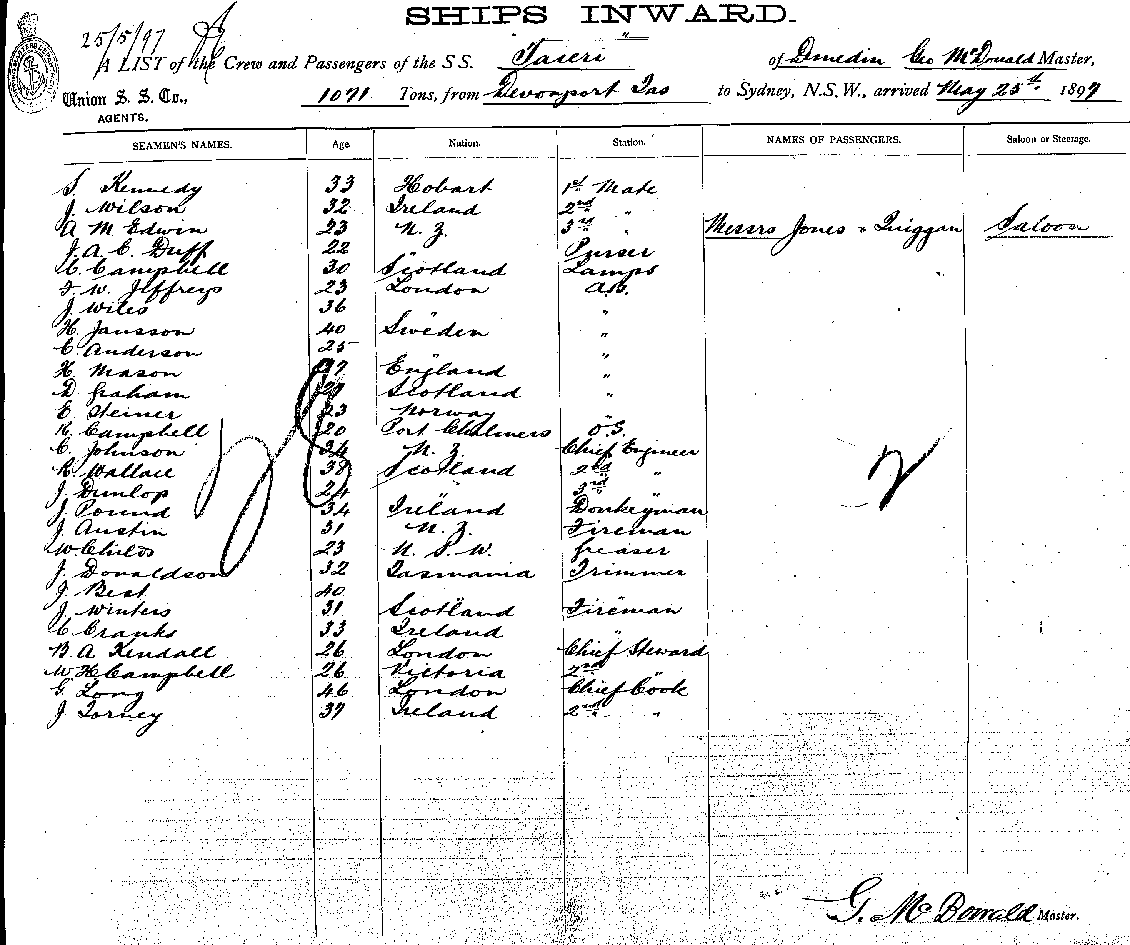 SHIPS INWARD.
25/5/97
A LIST of the Crew and Passengers of the S S. "Taieri" of Dunedin Geo McDonald Master,
Union S. S. Co., 1071 Tons, from Devonport Tas to Sydney, N.S.W., arrived May 25th 1897
AGENTS.
SEAMEN'S NAMES. Age. Nation. Station. NAMES OF PASSENGERS. Saloon or Steerage.
Kennedy 33 Hobart 1st Mate
J. Wilson 32 Ireland 2nd "
A M Edwin 23 N. Z. 3rd " Messrs Jones & Quiggan Saloon
J. A. C. Duff 22 " Purser
C. Campbell 30 Scotland Lamps
F. W. Jeffreys 23 London A.B.
J. Wiles 36 " "
H. Jansson 40 Sweden "
C. Anderson 25 " "
H. Mason 27 England "
D Graham Scotland "
E. Steiner 23 Norway "
R. Campbell 20 Port Chalmers O.S.
C. Johnson 34 N. Z. Chief Engineer
R. Wallace Scotland 2nd "
J. Dunlop 24 " 3rd "
J. Pound 34 Ireland Donkeyman
J. Austin 31 N. Z. Fireman
W. Childs 23 N. S. W. Greaser
J. Donaldson 32 Tasmania Trimmer
J. Best 40 " "
J. Winters 31 Scotland Fireman
C Cranks 33 Ireland "
B. A Kendall 26 London Chief Steward
W. H Campbell 26 Victoria 2nd "
G. Long 46 London Chief Cook
J. Torney 37 Ireland 2nd "
2
G. McDonald Master.